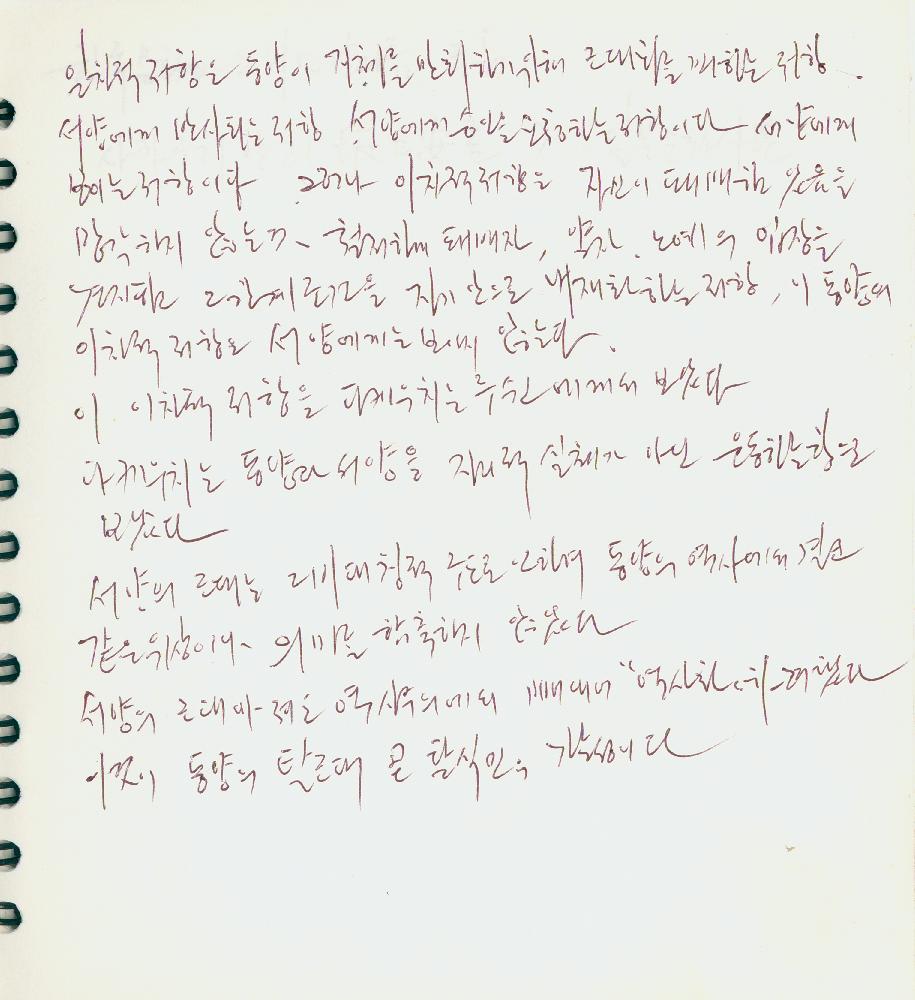 일차적 저항은 동양이 정체를 만회하기 위해 근대화를 꾀하는 저항.
서양에게 반사되는 저항 서양에게 승인을 요청하는 저항이다 서양에게
보이는 저항이다 그러나 이차적 저항은 자신이 패배한 것을
망각하지 않는 것, 철저하게 패배자, 약자, 노예의 입장을
견지하고 그 자기 안으로 내재화하는 저항, 이 동양의
이차적 저항은 서양에게는 보이지 않는다.
이 이차적 저항을 다케우치는 루쉰에게서 보았다
다케우치는 동양과 서양을 지리적 실체가 아닌 운동하는 항으로
보았다
서양의 근대는 비대칭적 구도로 인하여 동양의 역사에서 결코
같은 위상이나 의미를 함축하지 않았다
서양의 근대마저도 역사주의에서 빼내어 "역사화" 시켰다
이것이 동양의 탈근대 곧 탈식민의 가능성이다